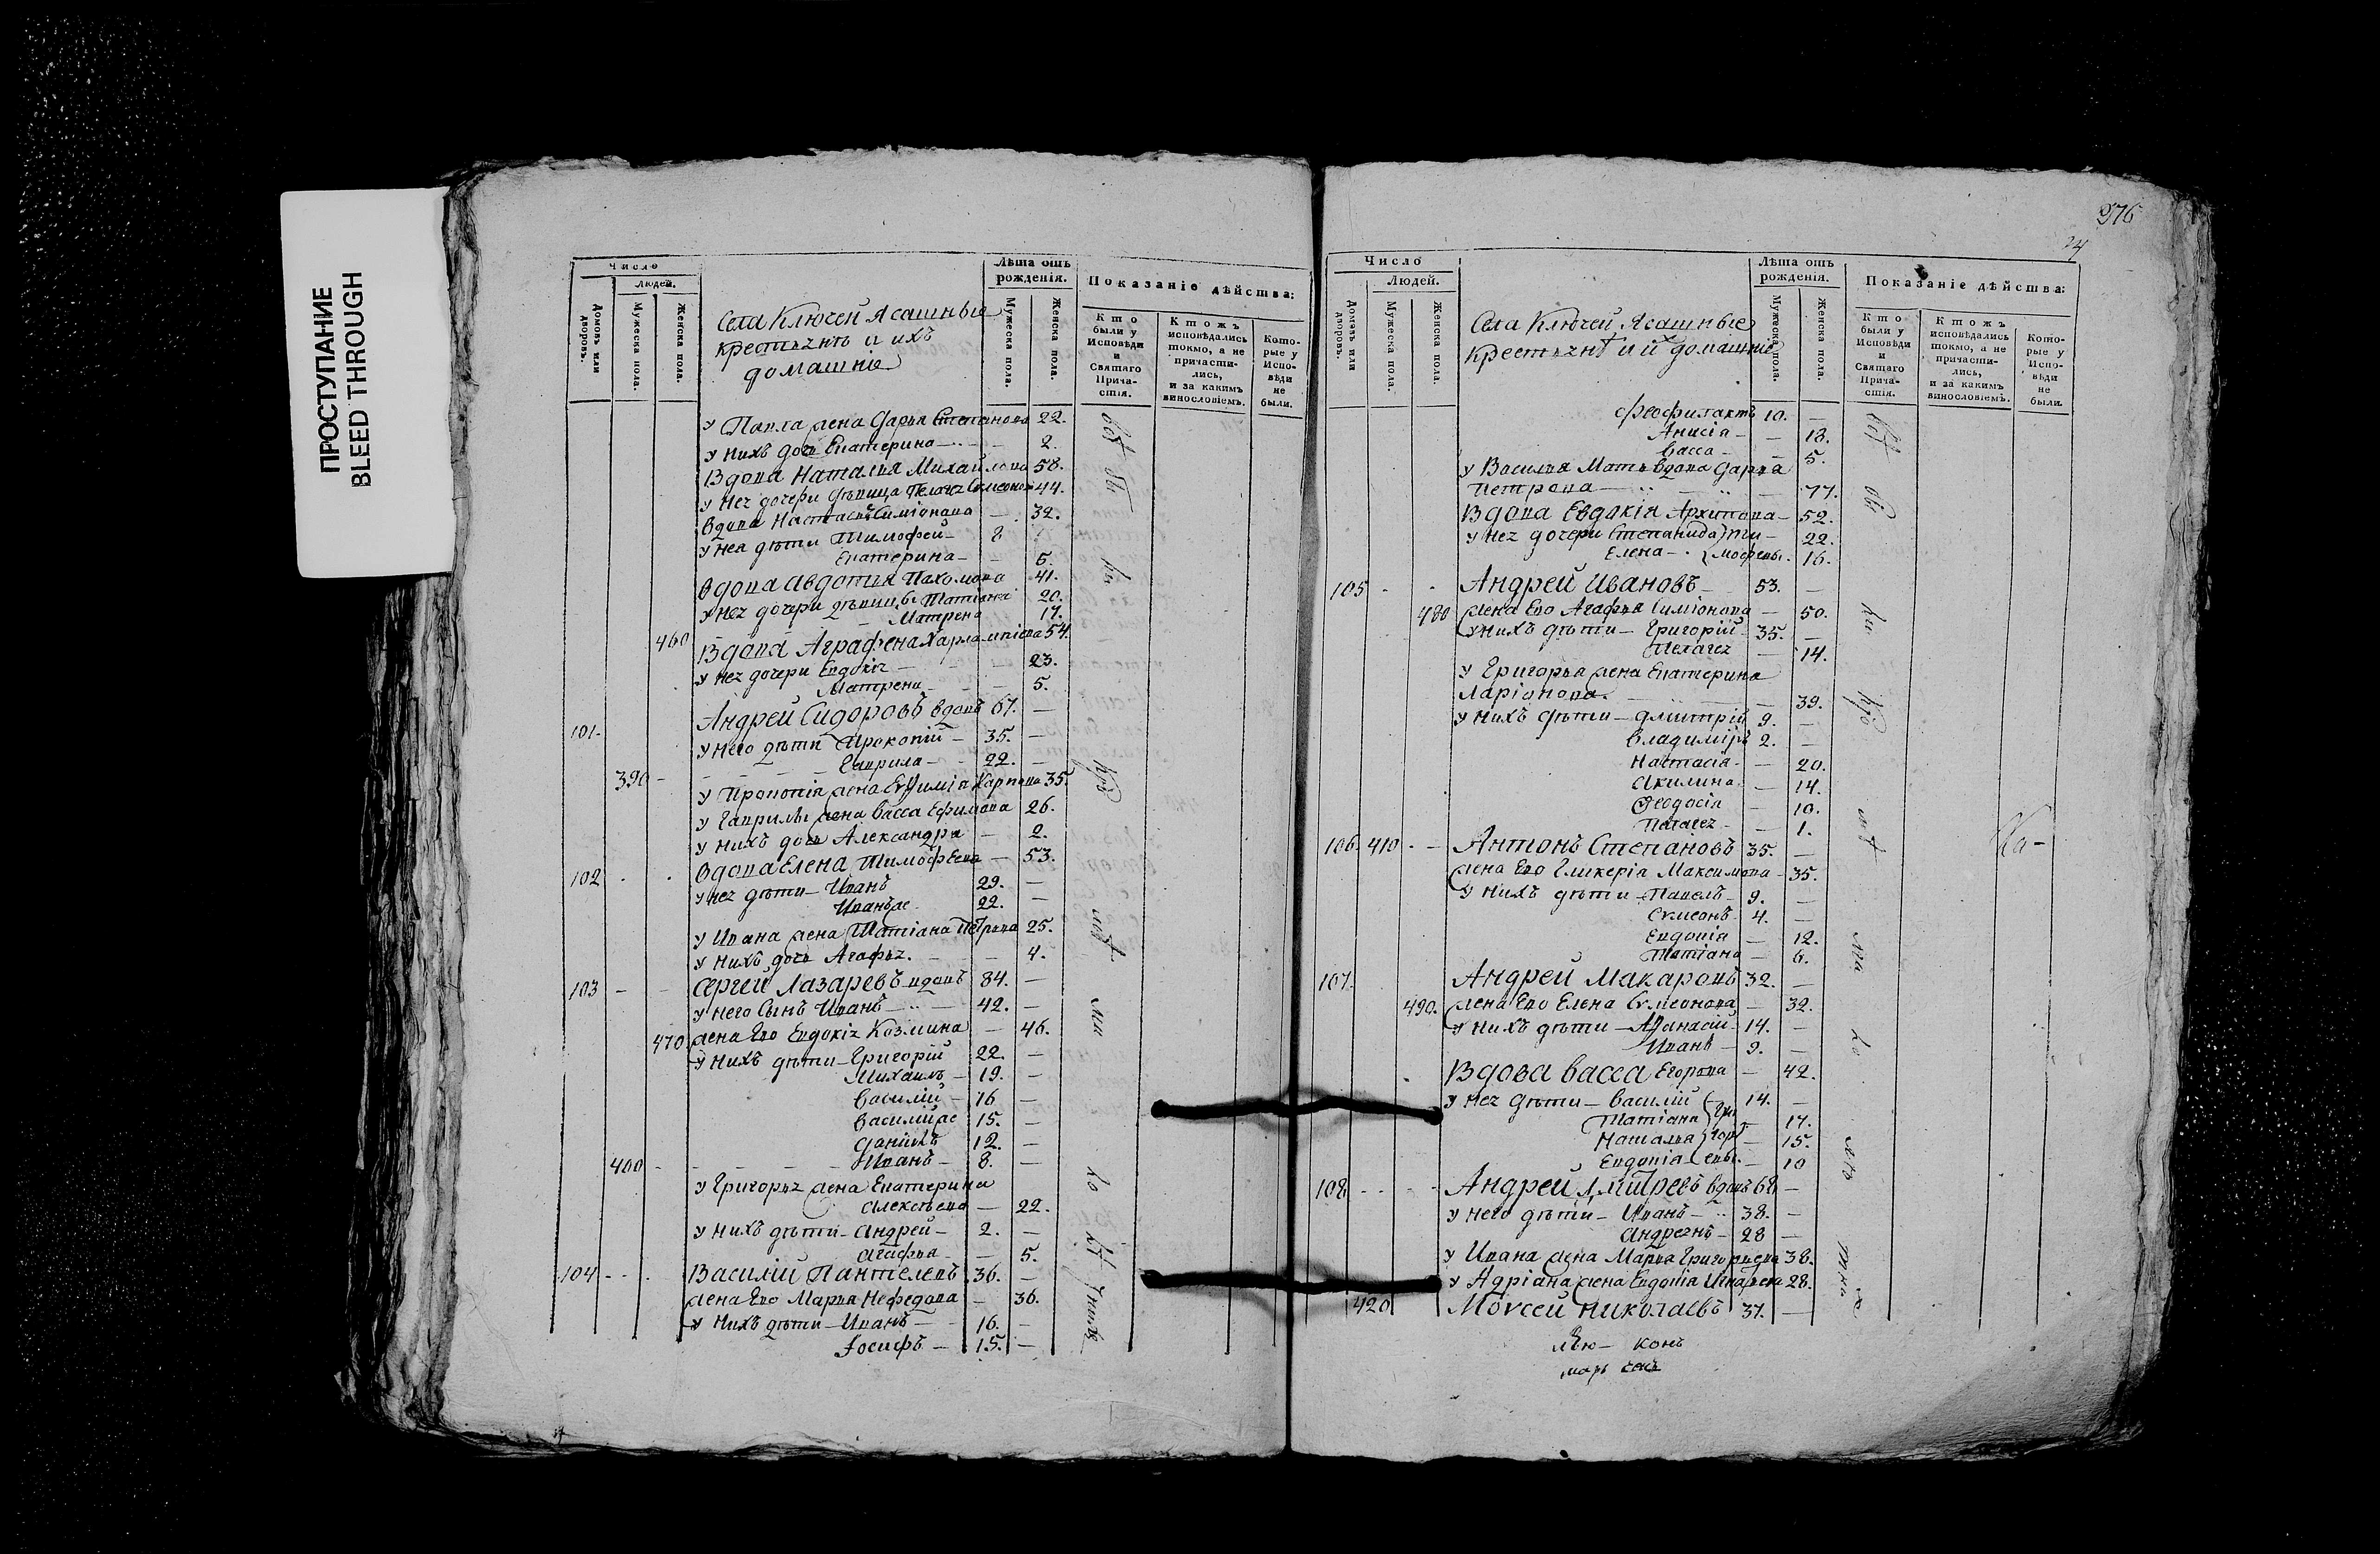 ПРОСТУПАНИЕ
BLEED THROUGH
276
24
Число
Людей.
Домовъ или дворовъ.
Мужеска пола.
Женска пола.
Села Ключей Ясашные
крестьянѣ и ихъ
домашніе
Лѣта отъ рожденія.
Мужеска пола.
Женска пола.
Показаніе дѣйства:
Кто были у Исповѣди и Святаго Причастія.
Ктожъ исповѣдались токмо, а не причастились, и за какимъ винословіемъ.
Которые у Исповѣди не были.
у Павла жена Дарья Степанова 22.
у нихъ дочь Екатерина — 2.
Вдова Наталья Михайлова 58.
у нея дочери дѣвица Пелагея 44.
Вдова Настасья Симіонова — 32.
у нея дѣти Тимофей — 8
Екатерина — 5.
Вдова Авдотья Пахомова 41.
у нея дочери дѣвицы Татіана 20.
Матрена 17.
460 Вдова Аграфена Харлампіева 54.
у нея дочери Евдокія — 23.
Матрена — 5.
101. Андрей Сидоровъ вдовъ 67. —
у него дѣти Прокопій — 35. —
390 — Гаврила — 22. —
у Прокопія жена Евѳимія Карпова 35.
у Гаврилы жена Васса Ефимова 26.
у нихъ дочь Александра — 2.
102 Вдова Елена Тимофеева — 53.
у нея дѣти — Иванъ 29. —
Иванъ же 22. —
у Ивана жена Татіана Петрова 25.
у нихъ дочь Агафья — 4.
103 Сергей Лазаревъ вдовъ 84. —
у него сынъ Иванъ — 42. —
470 жена Его Евдокія Козмина — 46.
у нихъ дѣти — Григорій 22. —
Михаилъ — 19. —
Василій — 16 —
Василій же 15. —
Данилъ 12. —
400 — Иванъ — 8. —
у Григорья жена Екатерина
Алексѣева — 22.
у нихъ дѣти — Андрей — 2. —
Агафья — 5.
104 Василій Пантелевъ 36. —
жена Его Марья Нефедова — 36.
у нихъ дѣти — Иванъ — 16. —
Іосифъ — 15. —
Число
Людей.
Домовъ или дворовъ.
Мужеска пола.
Женска пола.
Села Ключей Ясашные
крестьянѣ и их домашніе
Лѣта отъ рожденія.
Мужеска пола.
Женска пола.
Показаніе дѣйства:
Кто были у Исповѣди и Святаго Причастія.
Ктожъ исповѣдались токмо, а не причастились, и за какимъ винословіемъ.
Которые у Исповѣди не были.
Феофилактъ 10. —
Анисія — 18.
Васса — 5.
у Василья Мать вдова Дарья
Петрова — 77.
Вдова Евдокія Архипова — 52.
у нея дочери Степанида Ти- 22.
Елена — мофеевы. 16.
105 Андрей Ивановъ 53. —
480 жена Его Агафья Симіонова — 50.
у нихъ дѣти — Григорій 35. —
Пелагея — 14.
у Григорья жена Екатерина
Ларіонова — 39.
у нихъ дѣти — Дмитрій 9. —
Владиміръ 2. —
Настасія — 20.
Акилина — 14.
Ѳеодосія — 10.
Пелагея — 1.
106 410 Антонъ Степановъ 35. —
жена Его Гликерія Максимова — 35.
у нихъ дѣти — Павелъ 9. —
Сѵмеонъ 4. —
Евдокія — 12.
Татіана — 6.
107. Андрей Макаровъ 32. —
490. жена Его Елена Сѵмеонова — 32.
у нихъ дѣти — Афанасій 14. —
Иванъ — 9. —
Вдова Васса Егорова — 42.
у нея дѣти — Василій 14. —
Татіана Гри- 17.
Наталья гор- 15.
Евдокія евы. — 10
108 Андрей Дмитревъ вдовъ 68 —
у него дѣти — Иванъ — 38. —
Андреянъ — 28 —
у Ивана жена Марья Григорьева 38.
у Адріана жена Евдокія 28.
420 Моѵсей Николаевъ 37. —